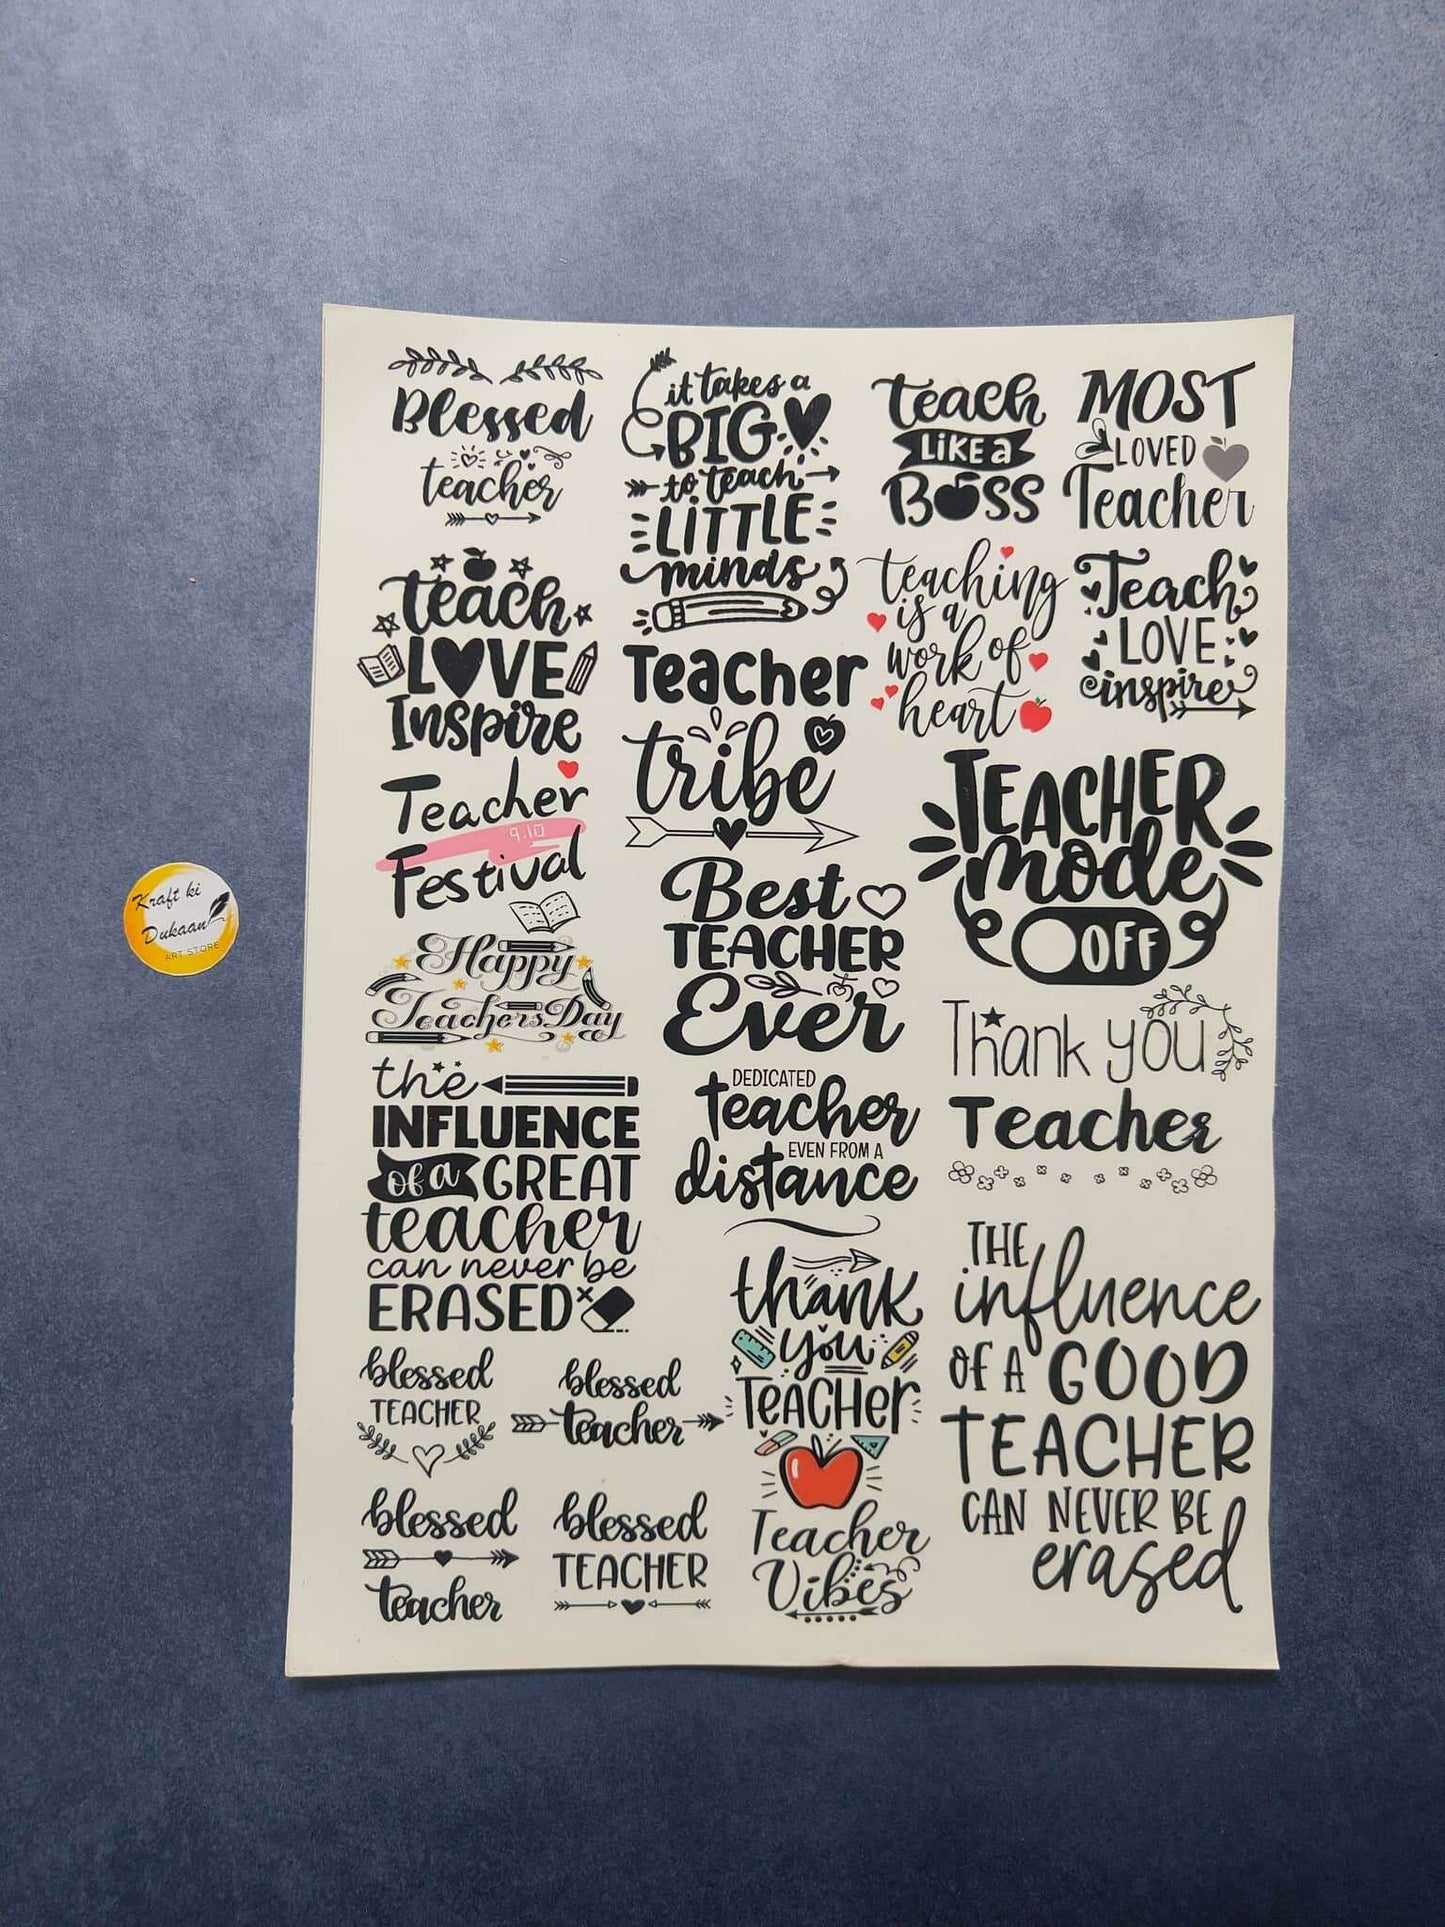 Blessed
teacher
it takes a
BIG
to teach
LITTLE
minds
teach
LIKE a
BOSS
MOST
LOVED
Teacher
teach
LOVE
Inspire
teaching
is a
work of
heart
Teach
LOVE
inspire
Teacher
tribe
Teacher
9.10
Festival
TEACHER
mode
OFF
Best
TEACHER
Ever
Kraft ki
Dukaan
ART STORE
Happy
Teachers Day
Thank you
Teacher
the
INFLUENCE
of a GREAT
teacher
can never be
ERASED
DEDICATED
teacher
EVEN FROM A
distance
THE
influence
OF A GOOD
TEACHER
CAN NEVER BE
erased
thank
you
TEACHer
blessed
TEACHER
blessed
teacher
blessed
teacher
blessed
TEACHER
Teacher
Vibes